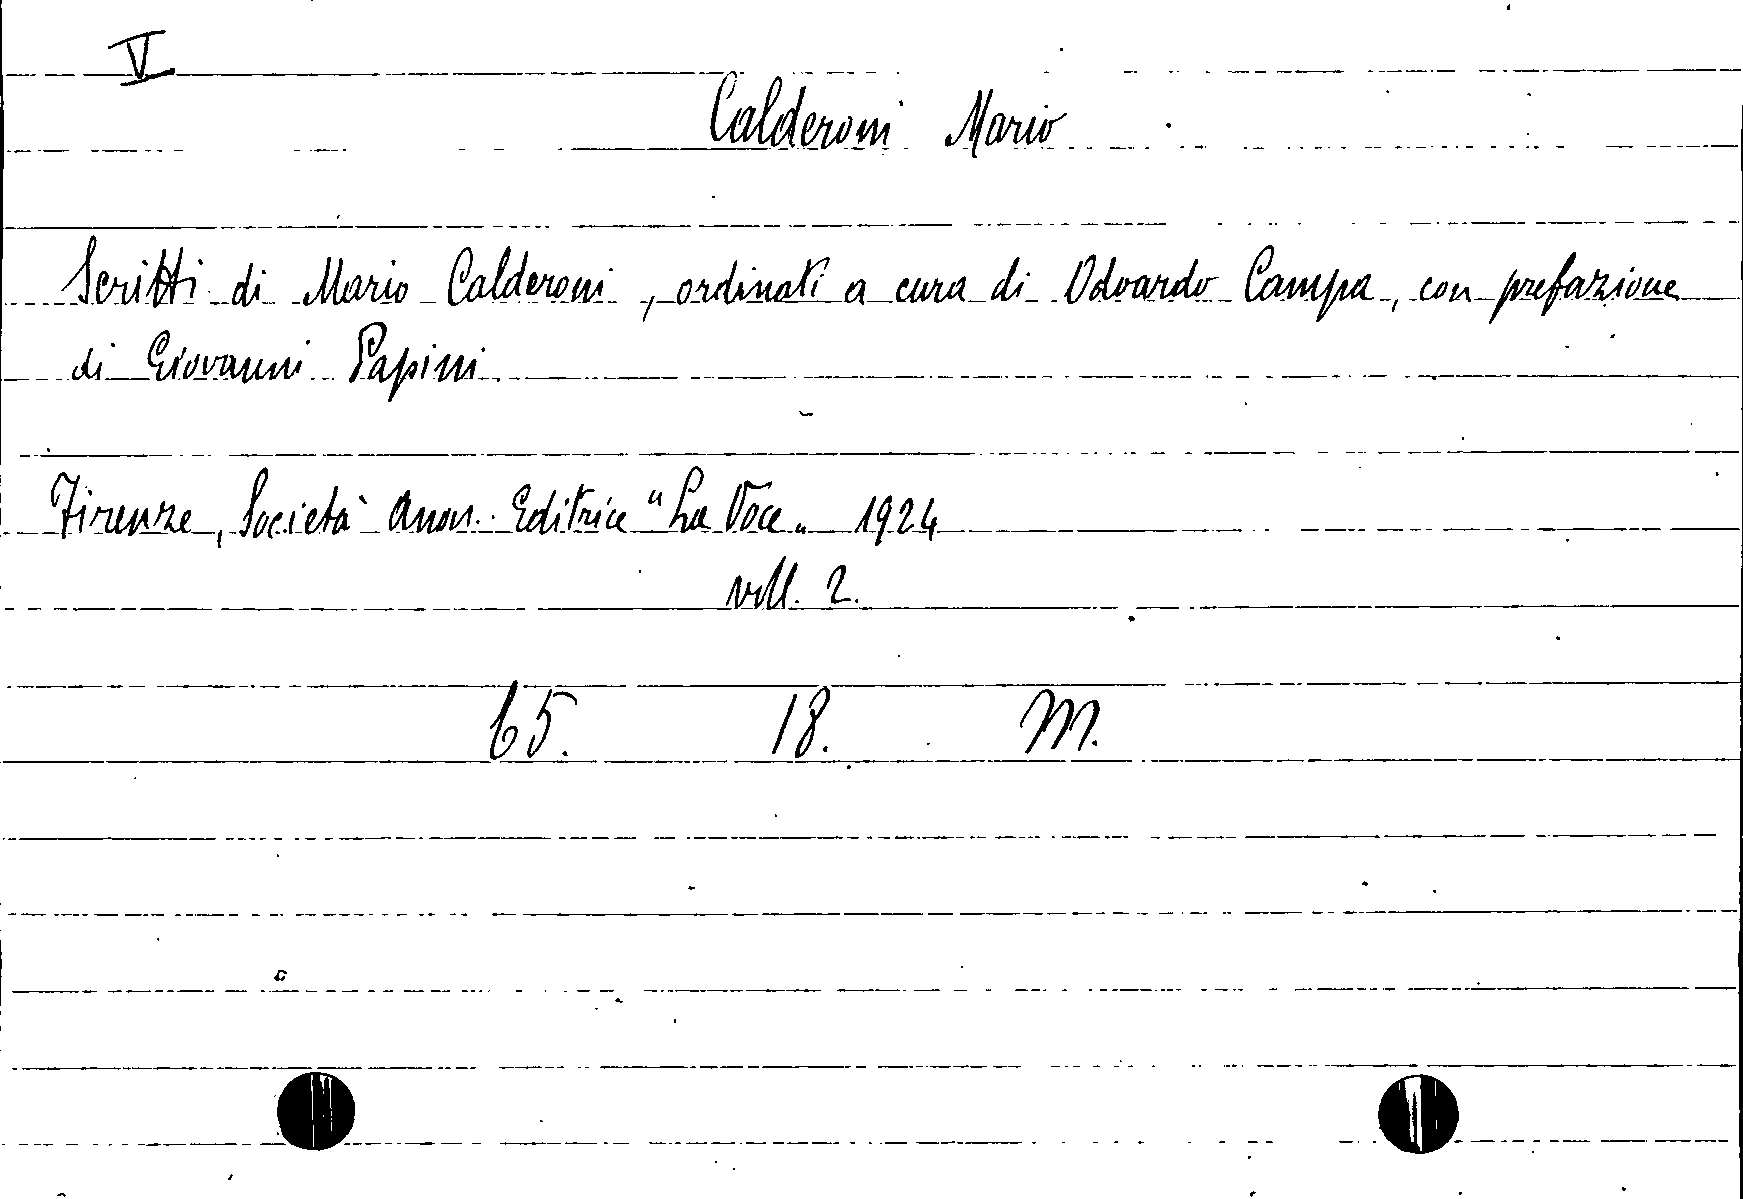 V
Calderoni Mario
Scritti di Mario Calderoni, ordinati a cura di Odoardo Campa, con prefazione
di Giovanni Papini
Firenze, Società Anon. Editrice "La Voce" 1924
voll. 2.
65. 18. M.